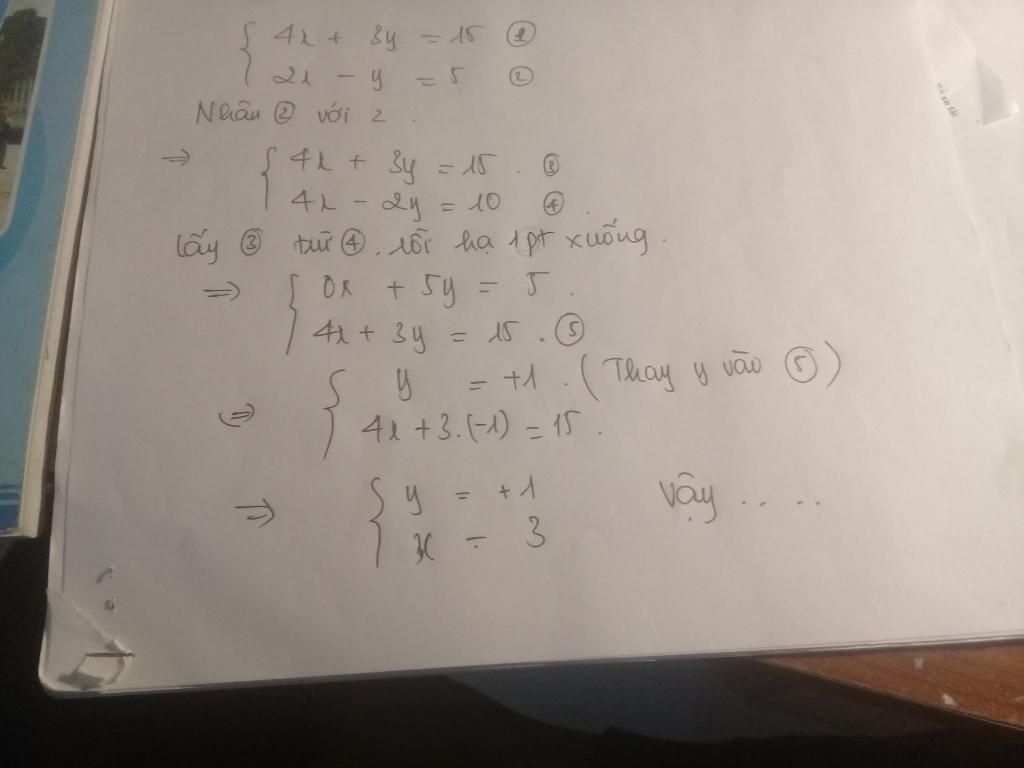 { 4x + 3y = 15 ①
2x - y = 5 ②
Nhân ② với 2.
=> { 4x + 3y = 15. ③
4x - 2y = 10 ④.
lấy ③ trừ ④. rồi hạ 1 pt xuống.
=> { 0x + 5y = 5.
4x + 3y = 15. ⑤
<=> { y = +1. (Thay y vào ⑤)
4x + 3.(-1) = 15.
=> { y = +1 Vậy ....
x = 3